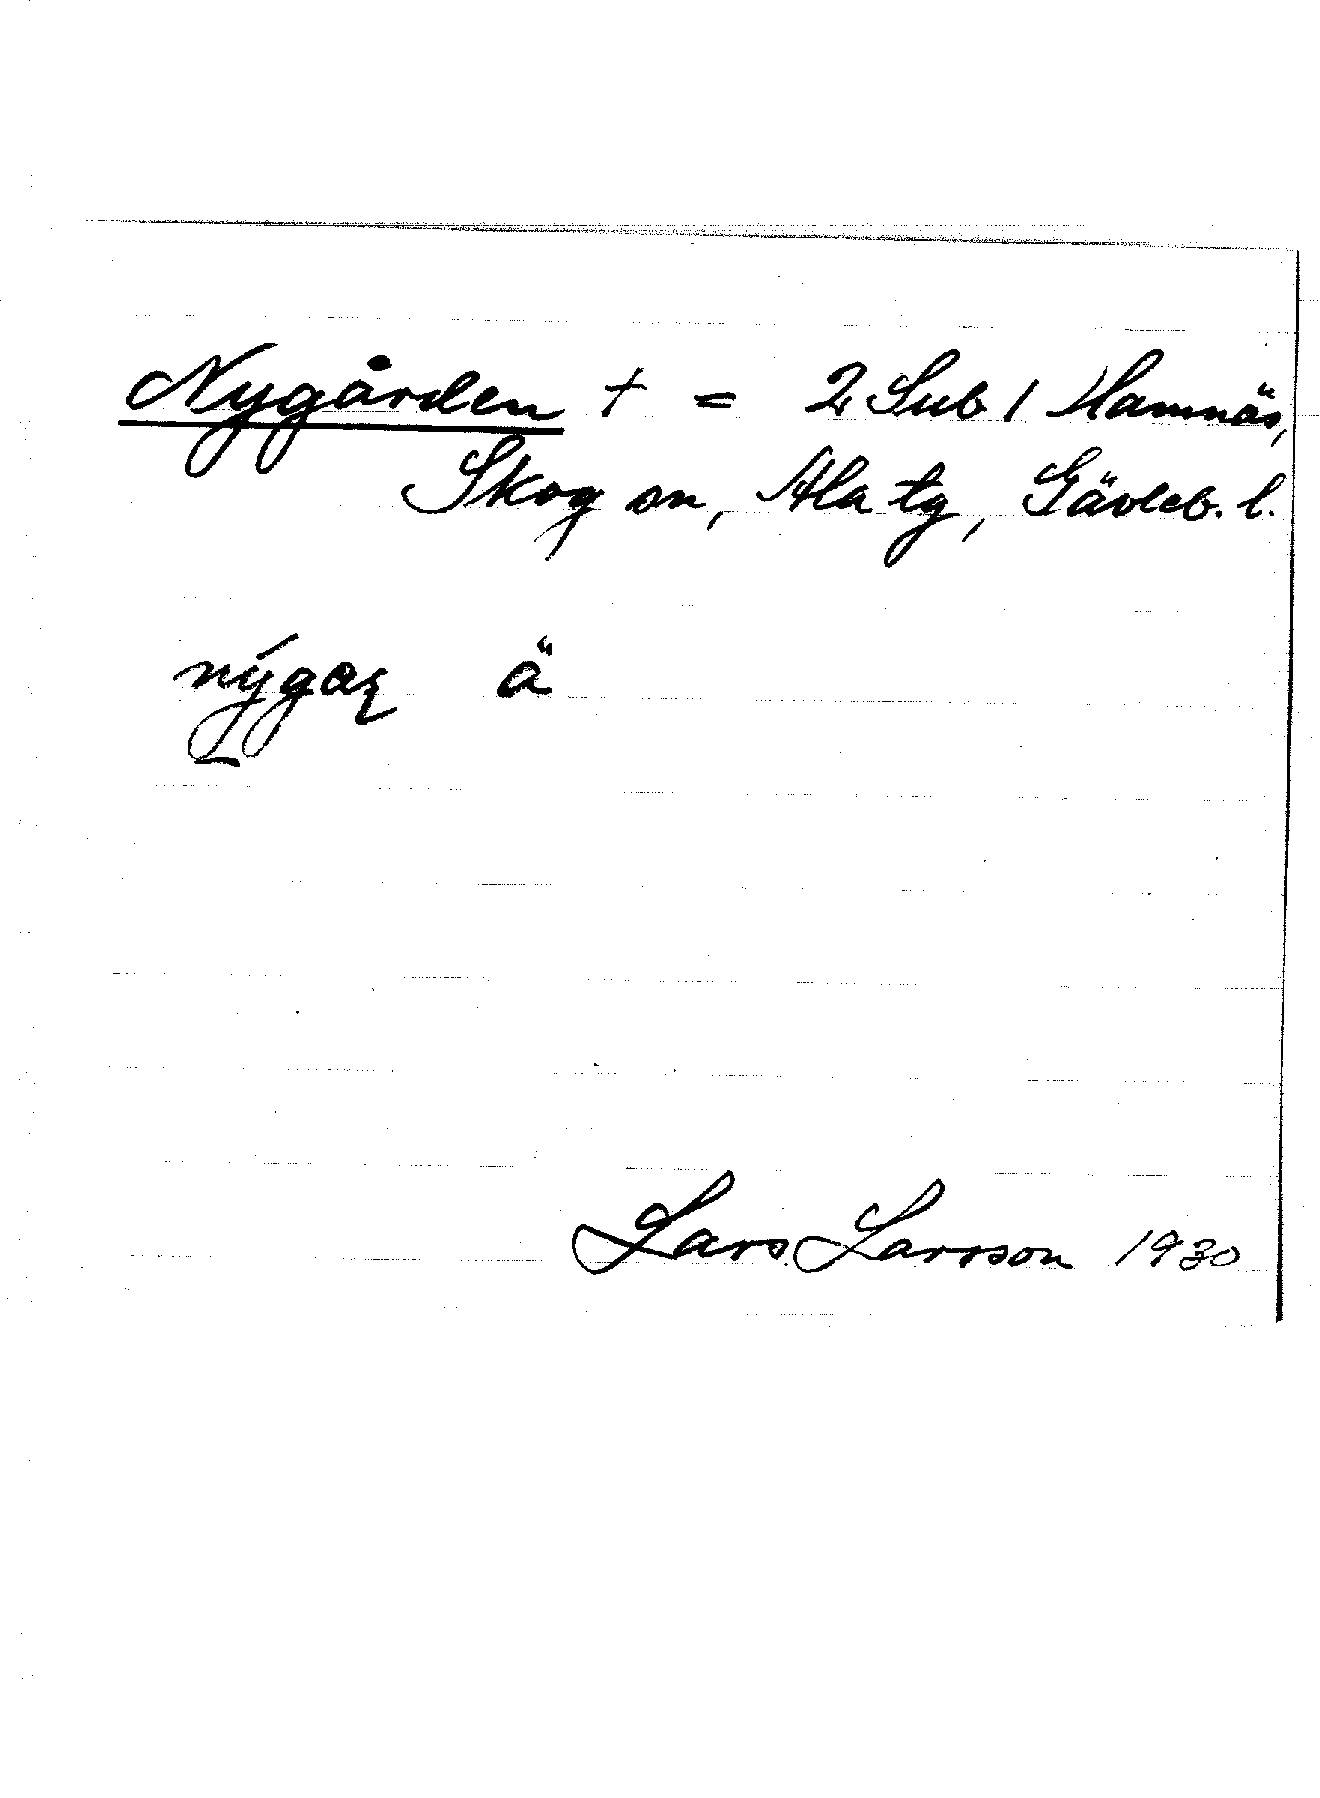 Nygården + = 2 Sub 1 Hamnäs,
Skog sn, Ala tg, Gävleb. l.
ä
Lars Larsson 1930